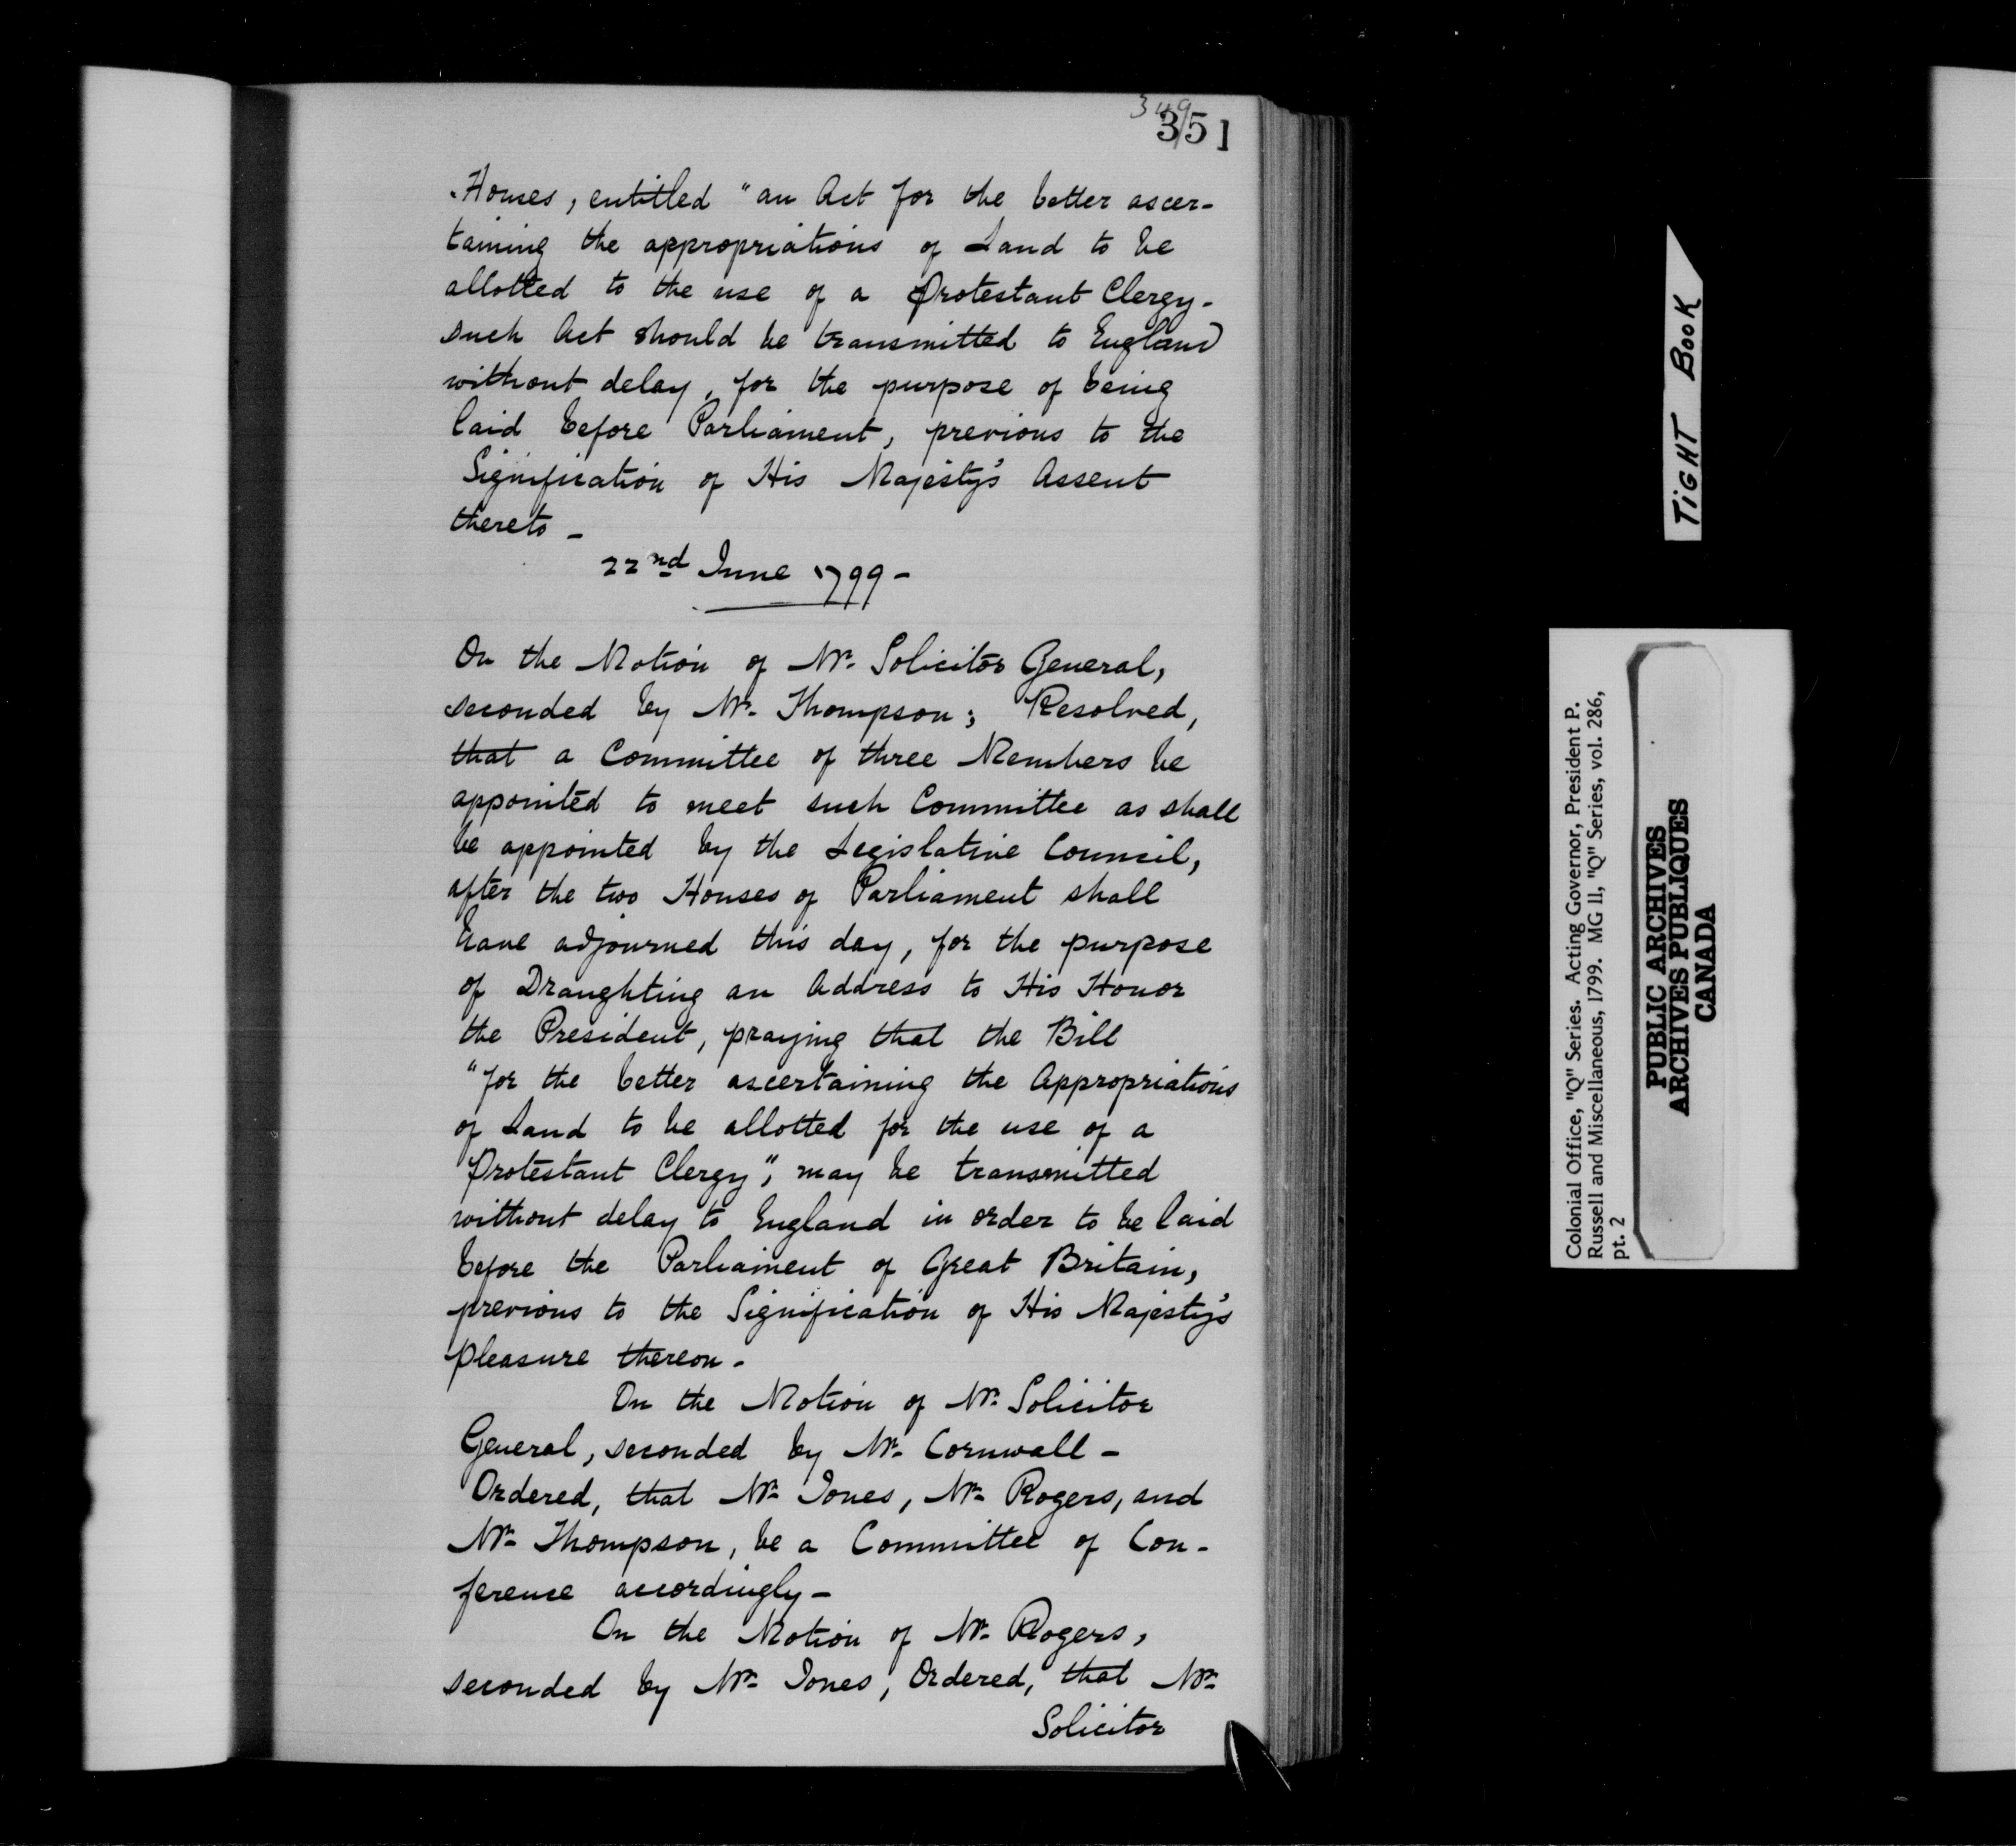 349
351
Houses, entitled "an Act for the better ascer-
taining the appropriations of Land to be
allotted to the use of a Protestant Clergy-
such Act should be transmitted to England
without delay, for the purpose of being
laid before Parliament, previous to the
Signification of His Majesty's Assent
thereto -
22nd June 1799 -
On the Motion of Mr. Solicitor General,
seconded by Mr. Thompson; Resolved,
that a Committee of three Members be
appointed to meet such Committee as shall
be appointed by the Legislative Council,
after the two Houses of Parliament shall
have adjourned this day, for the purpose
of Draughting an Address to His Honor
the President, praying that the Bill
"for the better ascertaining the Appropriations
of Land to be allotted for the use of a
Protestant Clergy", may be transmitted
without delay to England in order to be laid
before the Parliament of Great Britain,
previous to the Signification of His Majesty's
pleasure thereon -
On the Motion of Mr. Solicitor
General, seconded by Mr. Cornwall -
Ordered, that Mr. Jones, Mr. Rogers, and
Mr. Thompson, be a Committee of Con-
ference accordingly -
On the Motion of Mr. Rogers,
seconded by Mr. Jones, Ordered, that Mr.
Solicitor
TIGHT BOOK
Colonial Office, "Q" Series. Acting Governor, President P.
Russell and Miscellaneous, 1799. MG 11, "Q" Series, vol. 286,
pt. 2
PUBLIC ARCHIVES
ARCHIVES PUBLIQUES
CANADA